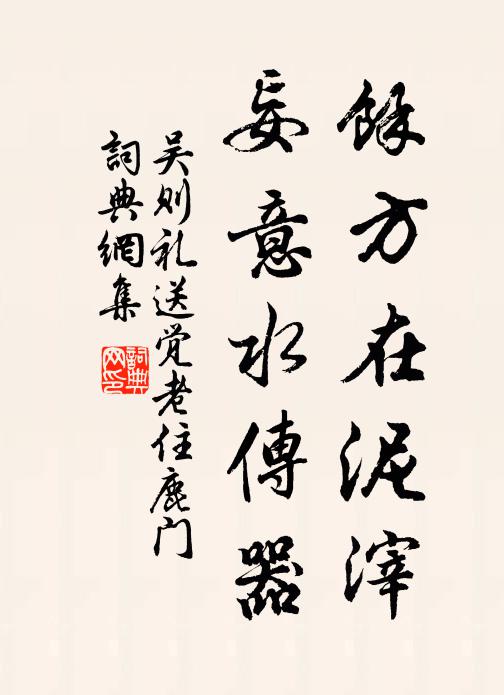 餘方在泥滓
妄意水傳器
吴则礼送觉老住鹿门
詞典網集
詞典網印